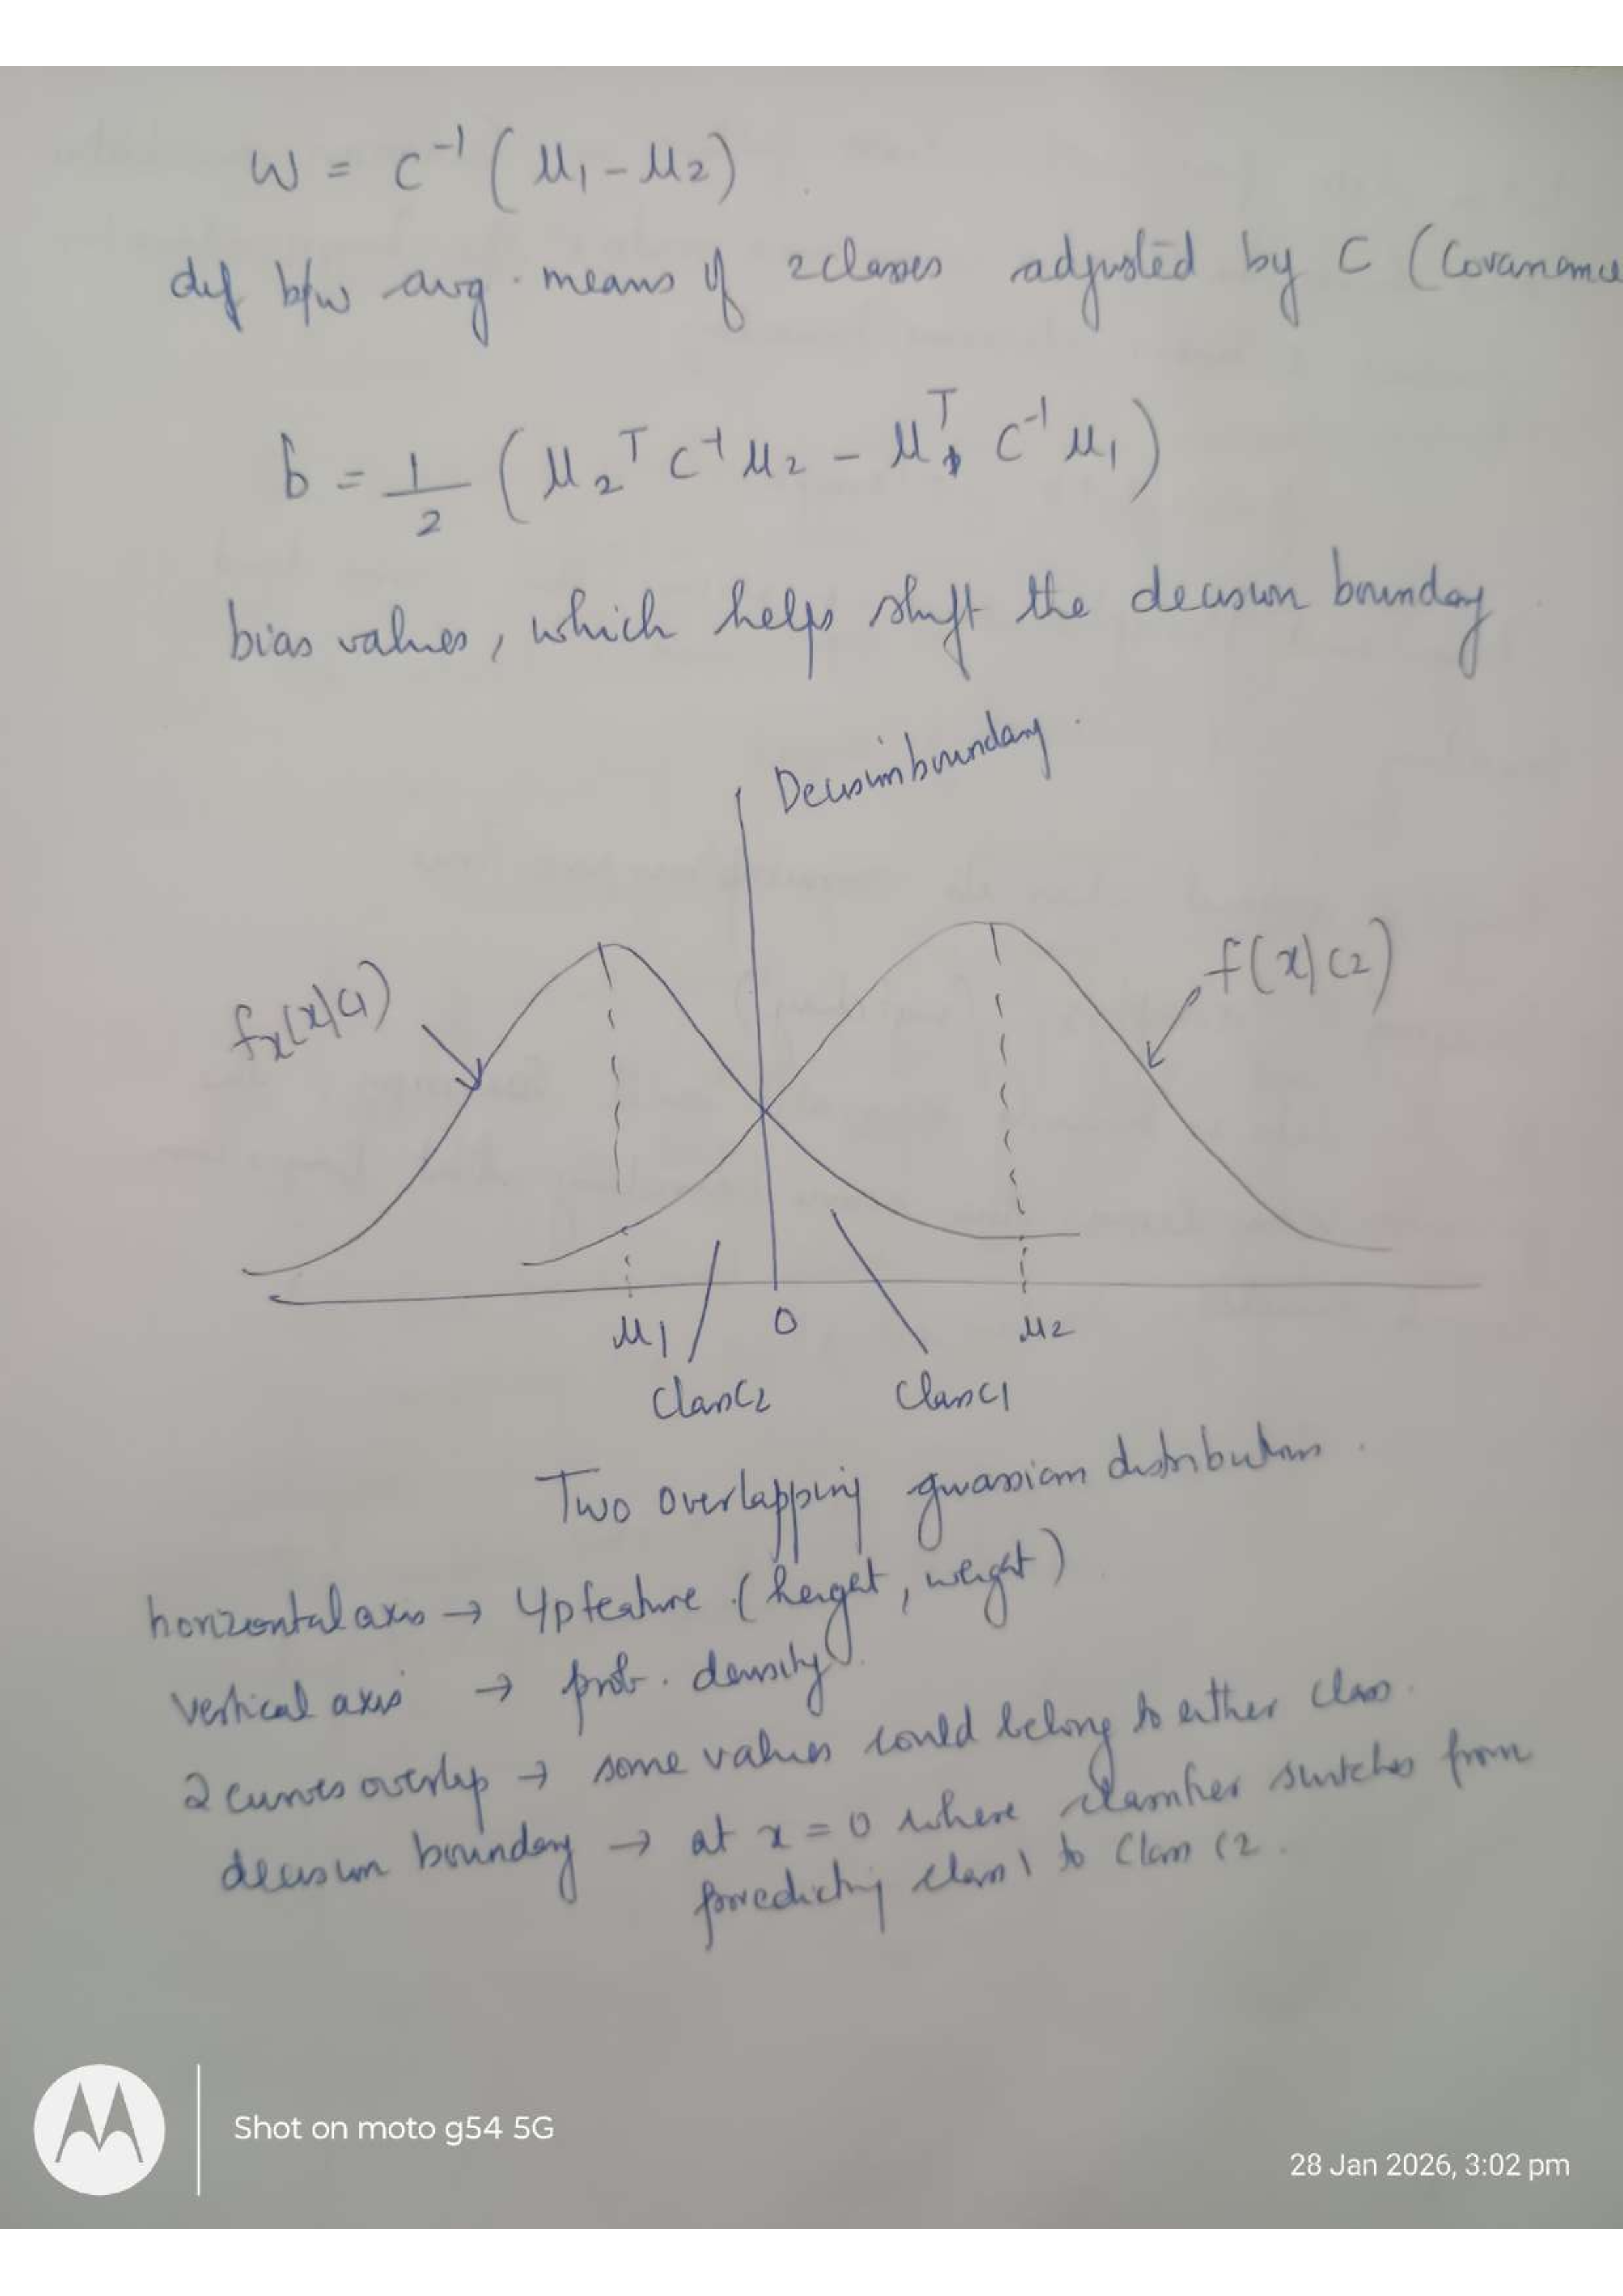 W = C⁻¹ (μ₁ - μ₂)
dif b/w avg. means of 2 classes adjusted by C (Covariance
b = 1/2 (μ₂ᵀ C⁻¹ μ₂ - μ₁ᵀ C⁻¹ μ₁)
bias values, which helps shift the decision boundary
Decision boundary.
fx(x|C1)
f(x|C2)
μ1
0
μ2
Class C2
Class C1
Two overlapping guassian distributions.
horizontal axis → I/p feature (height, weight)
vertical axis → prob. density.
2 curves overlap → some values could belong to either class.
decision boundary → at x = 0 where classifier switches from
predicting class 1 to Class C2.
Shot on moto g54 5G
28 Jan 2026, 3:02 pm